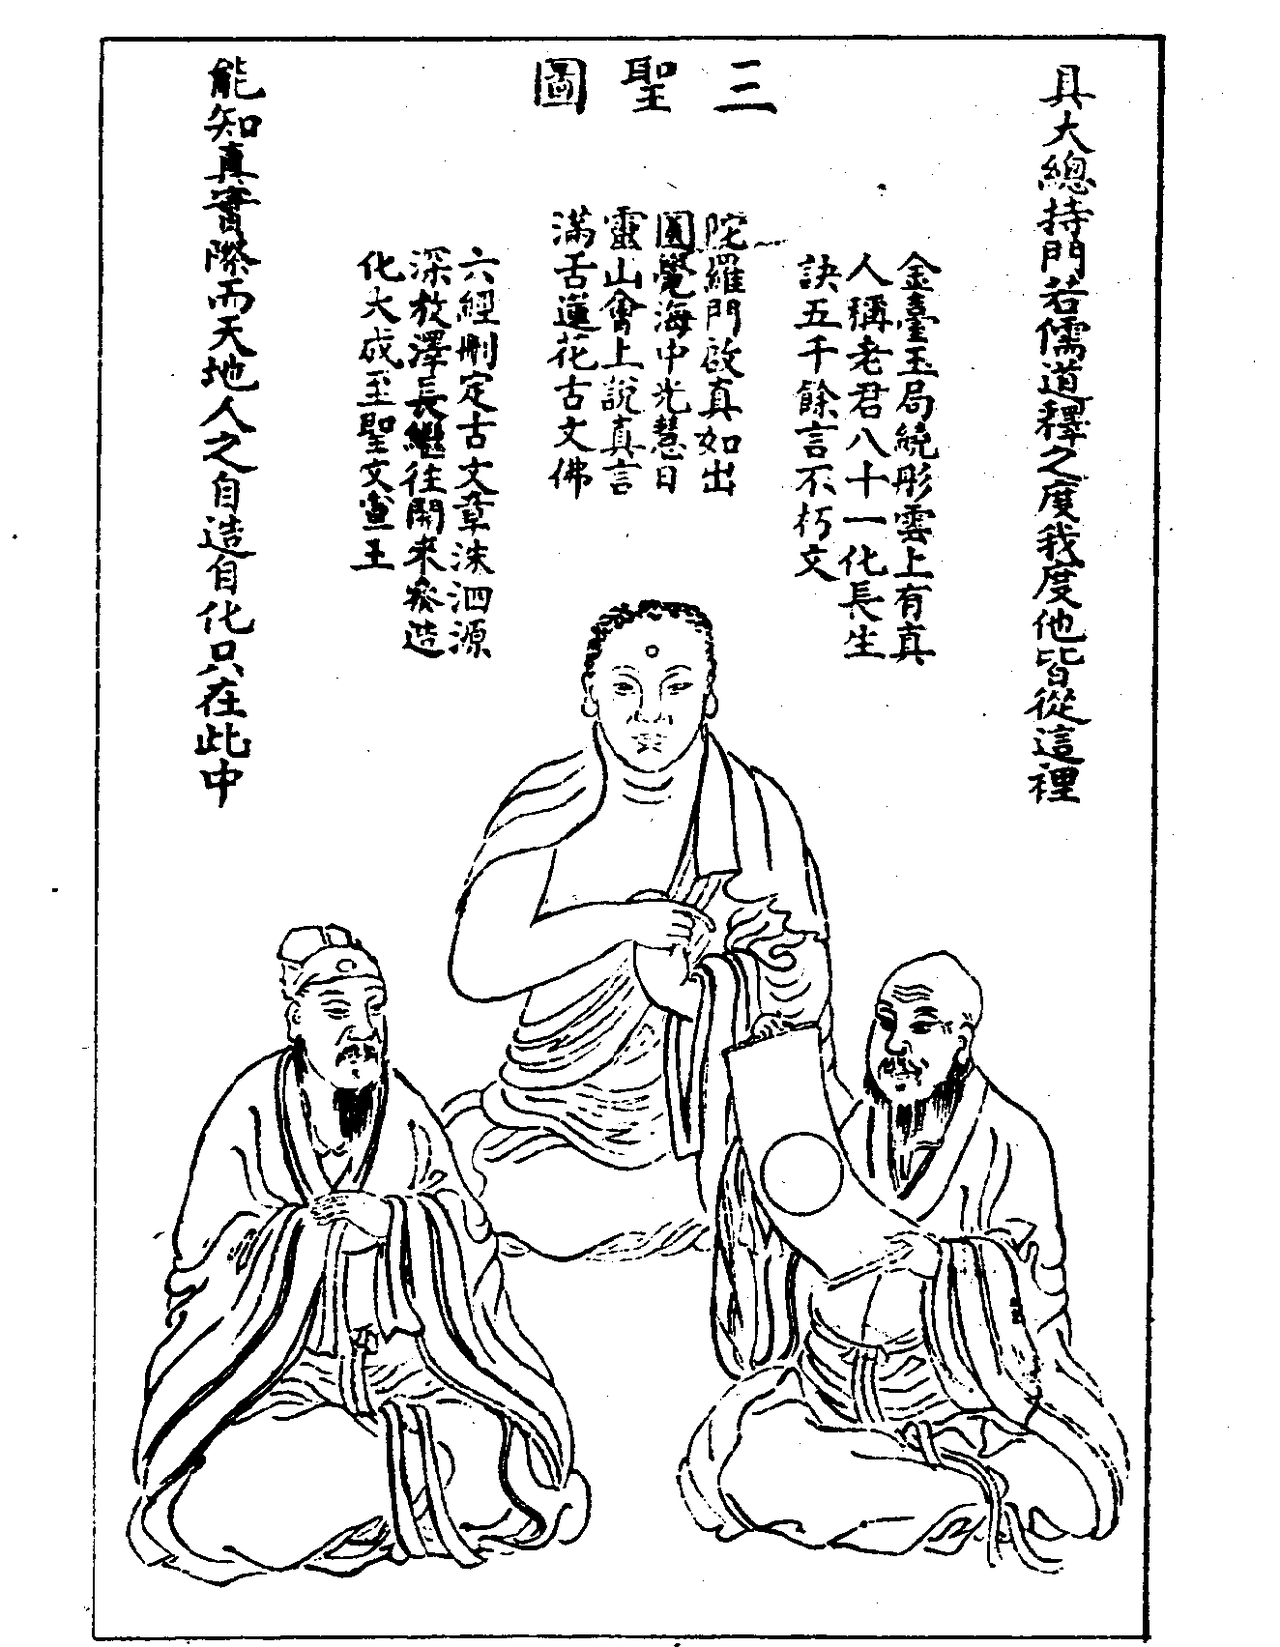 三聖圖
具大總持門若儒道釋之度我度他皆從這裡
金臺玉局繞彤雲上有真
人稱老君八十一化長生
訣五千餘言不朽文
陀羅門啟真如出
圓覺海中光慧日
靈山會上說真言
滿舌蓮花古文佛
六經刪定古文章洙泗源
深教澤長繼往開來參造
化大成至聖文宣王
能知真實際而天地人之自造自化只在此中